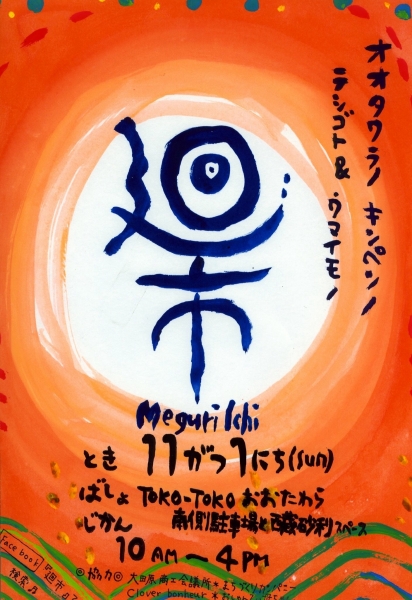 オオタワラノ キンペンノ
テシゴト& ウマイモノ
廻市
Meguri Ichi
とき 11がつ1にち(sun)
ばしょ TOKO-TOKO おおたわら
南側駐車場と西蔵砂利スペース
じかん
10 AM〜4 PM
Face book
検索♫
◎協力◎ 大田原商工会議所*まちづくりカンパニー
Clover bonheur